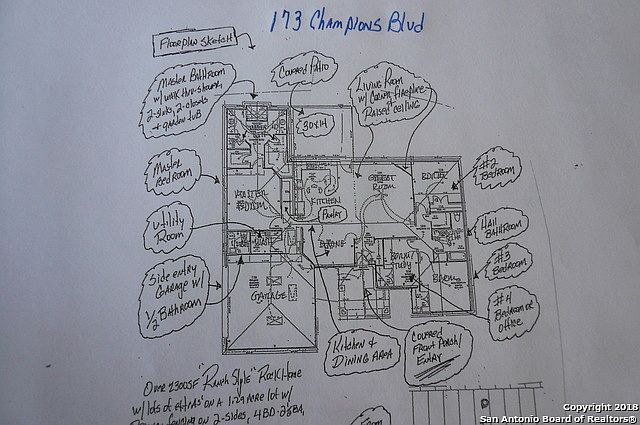 173 Champions Blvd
Floorplan Sketch
Master Bathroom
w/ walk thru-shower,
2-sinks, 2-closets
+ garden tub
Covered Patio
Living Room
w/ Corner fireplace
Raised ceiling
30x14
Master
Bedroom
#2
Bedroom
MASTER
BDRM
KITCHEN
GREAT
ROOM
Pantry
Utility
Room
Hall
Bathroom
#3
Bedroom
Side entry
Garage w/
1/2 Bathroom
GARAGE
#4
Bedroom or
office
Kitchen &
Dining Area
Covered
Front Porch/
Entry
Over 2300SF "Ranch Style" Rock Home
w/ lots of extras on a 1.29 acre lot w/
on 2-sides, 4BD-2.5BA,
Copyright 2018
San Antonio Board of Realtors®